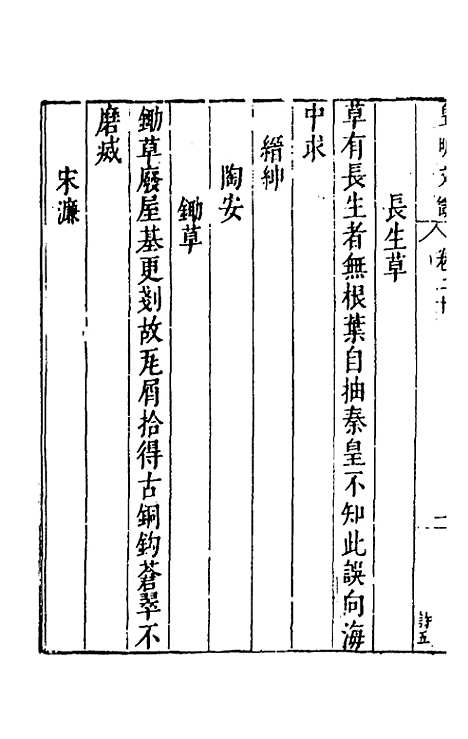 皇明文徵
卷二十
二
詩五
長生草
草有長生者無根葉自抽秦皇不知此誤向海
中求
縉紳
陶安
鋤草
鋤草廢屋基更剗故瓦屑拾得古銅鈎蒼翠不
磨滅
宋濂